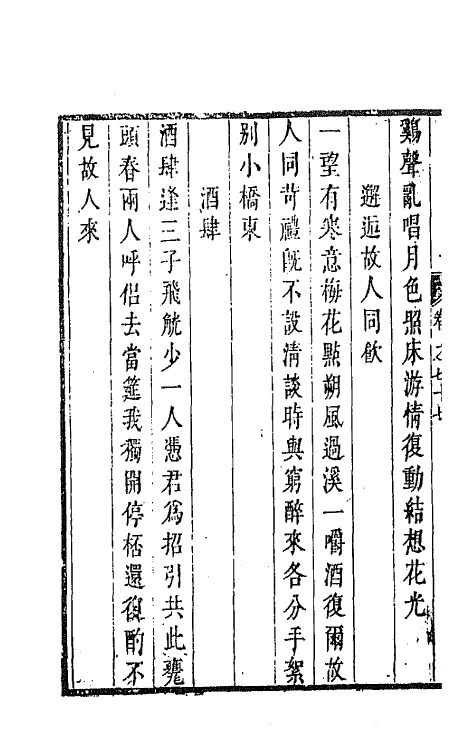 鷄聲亂唱月色照床游情復動結想花光
邂逅故人同飲
一望有寒意梅花點朔風過溪一嚼酒復爾故
人同苛禮旣不設清談時與窮醉來各分手絮
别小橋東
酒肆
酒肆逢三子飛觥少一人憑君爲招引共此甕
頭春兩人呼侣去當筵我獨開停桮還復酌不
見故人來